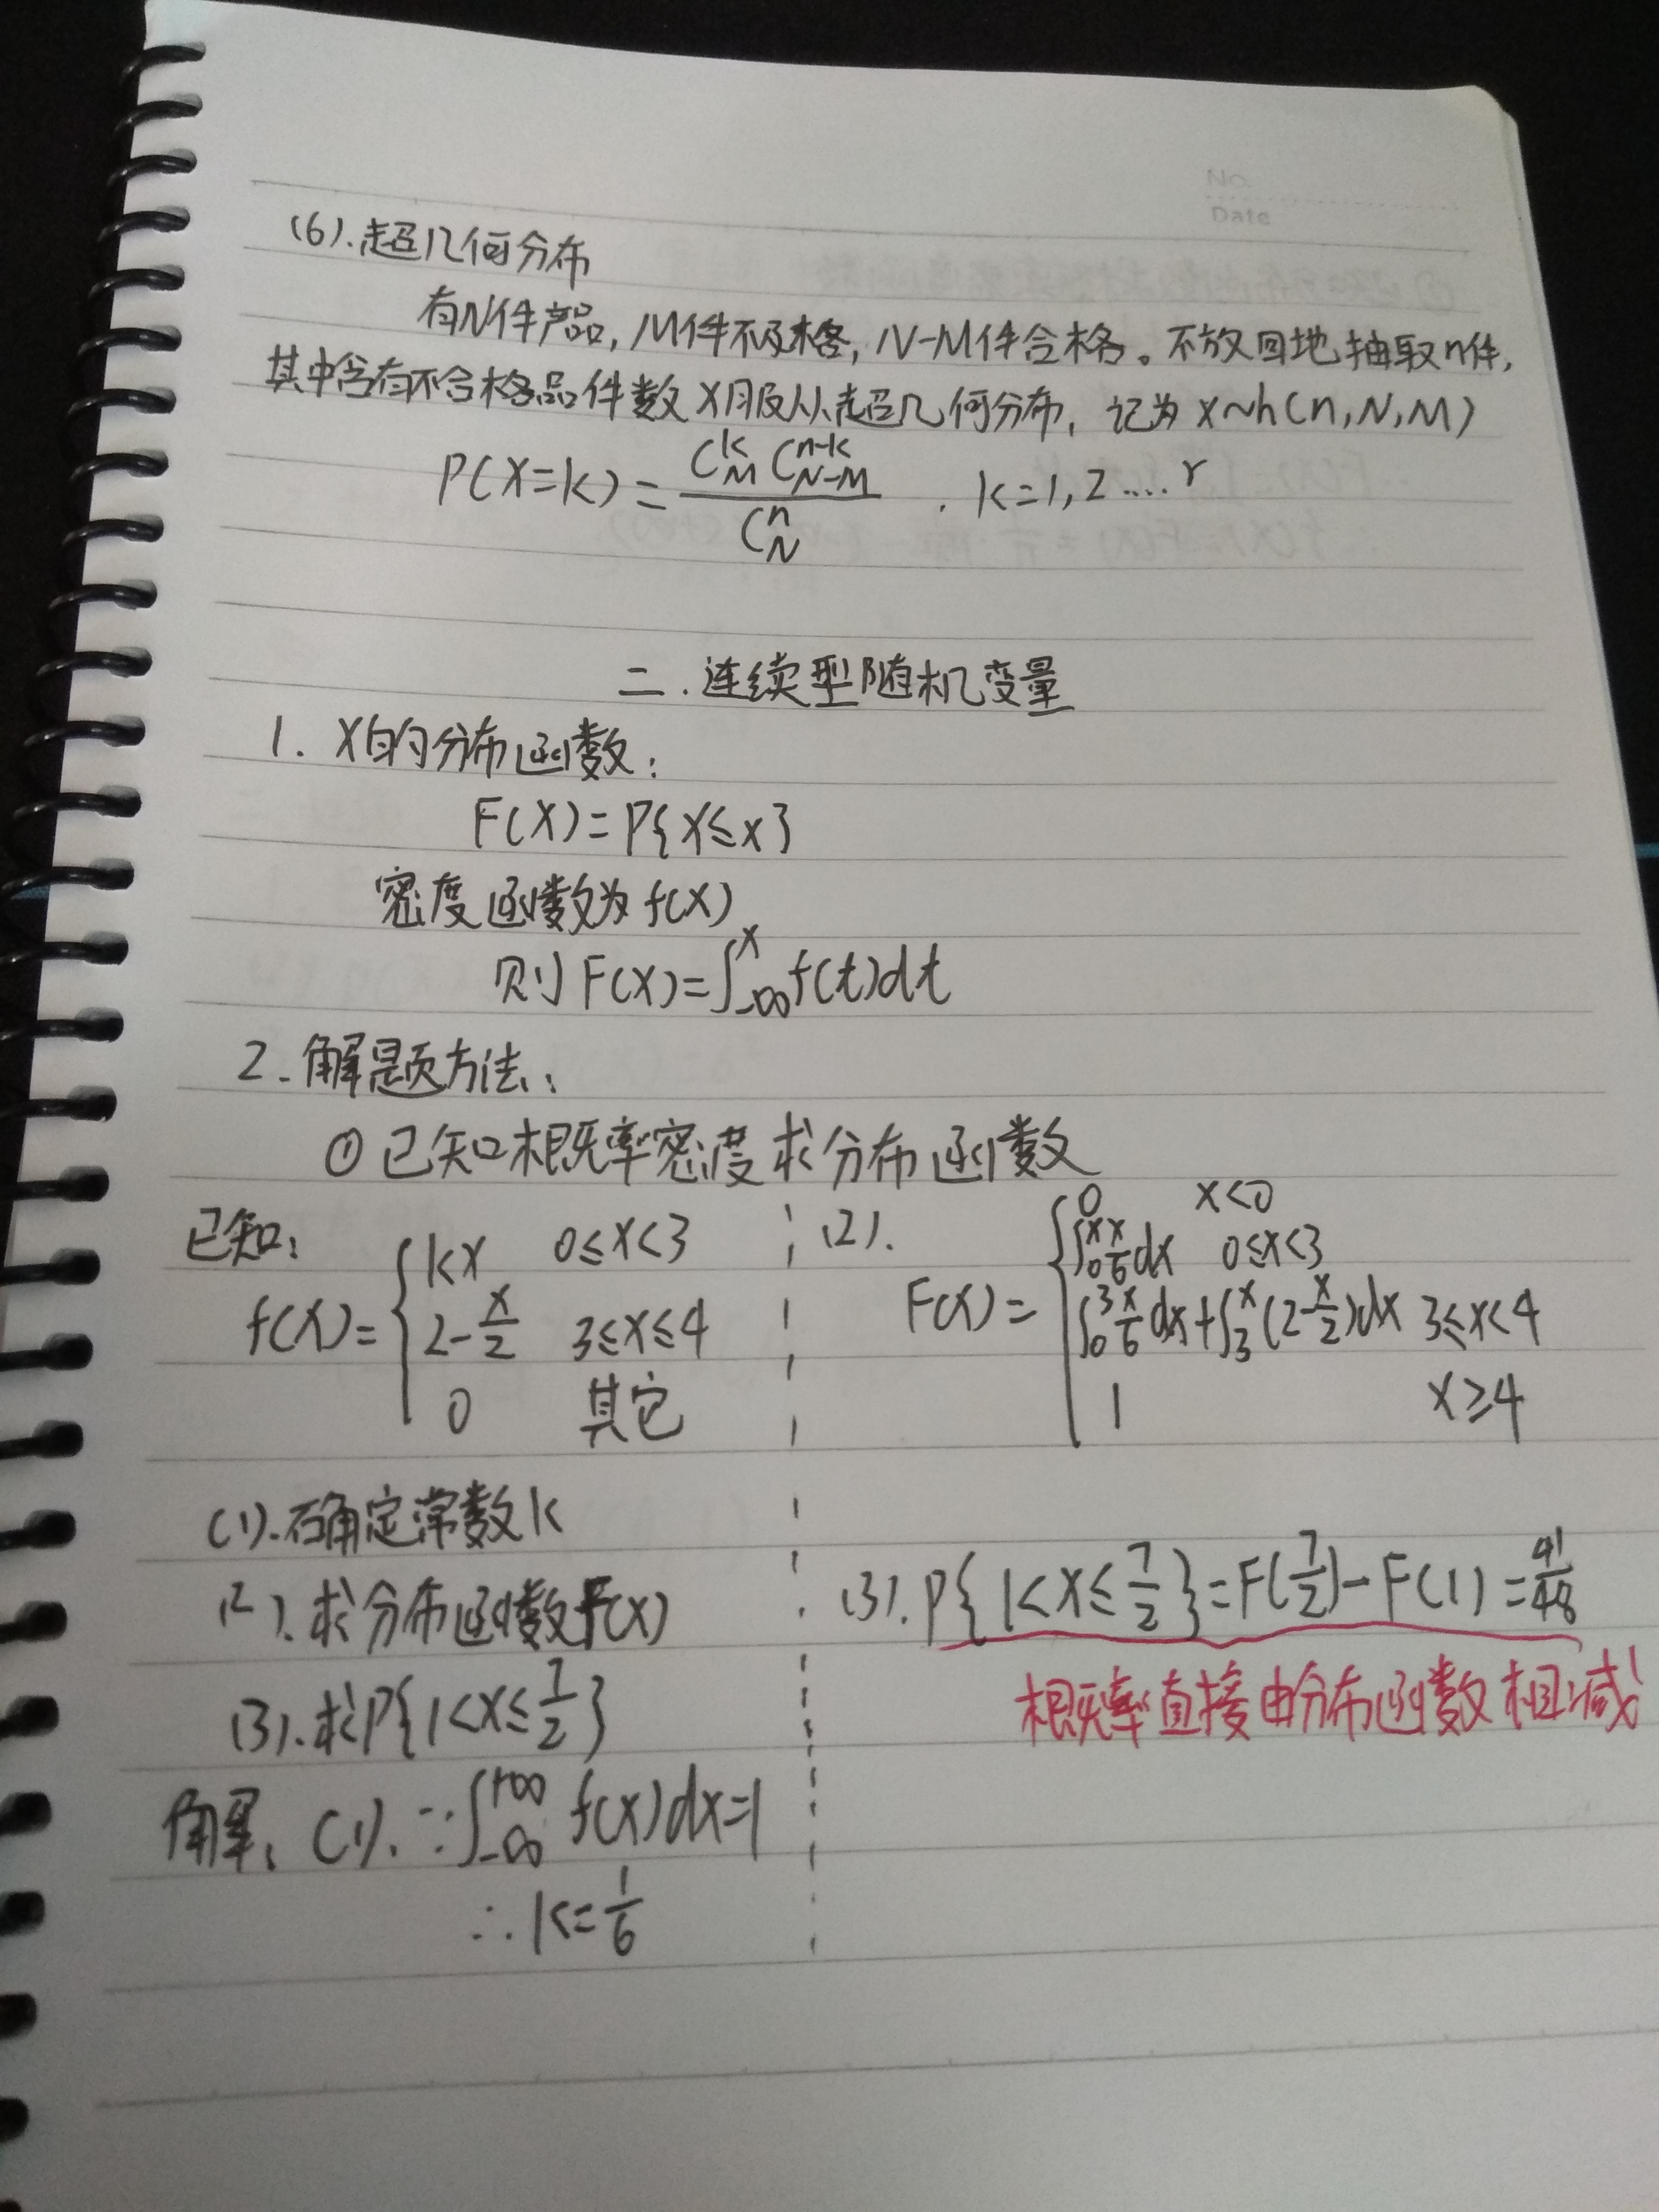 No.
Date
(6).超几何分布
有N件产品,M件不及格,N-M件合格。不放回地抽取n件,
其中含有不合格品件数X服从超几何分布,记为X~h(n,N,M)
P(X=k)=\frac{C_M^k C_{N-M}^{n-k}}{C_N^n} . k=1,2....r
二.连续型随机变量
1. X的分布函数:
F(X)=P{X≤x}
密度函数为f(X)
则F(X)=∫_{-∞}^{x}f(t)dt
2.解题方法:
①已知概率密度求分布函数
已知:
f(X)={
kx 0≤x<3
2-\frac{x}{2} 3≤x≤4
0 其它
(1).确定常数k
(2).求分布函数F(X)
(3).求P{1<X≤\frac{7}{2}}
解:(1).∵∫_{-∞}^{+∞}f(x)dx=1
∴k=\frac{1}{6}
(2).
F(X)={
0 x<0
∫_0^x\frac{x}{6}dx 0≤x<3
∫_0^3\frac{x}{6}dx+∫_3^x(2-\frac{x}{2})dx 3≤x<4
1 x≥4
(3).P{1<X≤\frac{7}{2}}=F(\frac{7}{2})-F(1)=\frac{41}{48}
概率直接由分布函数相减